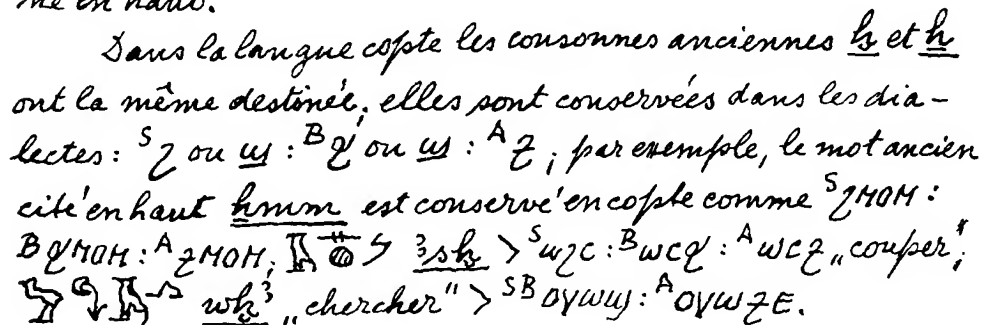 me en haut.
Dans la langue copte les consonnes anciennes ḫ et ẖ
ont la même destinée, elles sont conservées dans les dia-
lectes : ˢϩ ou ϣ : ᴮϧ ou ϣ : ᴬⳉ ; par exemple, le mot ancien
cité en haut ẖmm est conservé en copte comme ˢϩⲙⲟⲙ :
ᴮϧⲙⲟⲙ : ᴬⳉⲙⲟⲙ ; ꜣsḫ > ˢⲱϩⲥ : ᴮⲱⲥϧ : ᴬⲱⲥⳉ „couper“ ;
wḫꜣ „chercher“ > ˢᴮⲟⲩⲱϣ : ᴬⲟⲩⲱⳉⲉ.